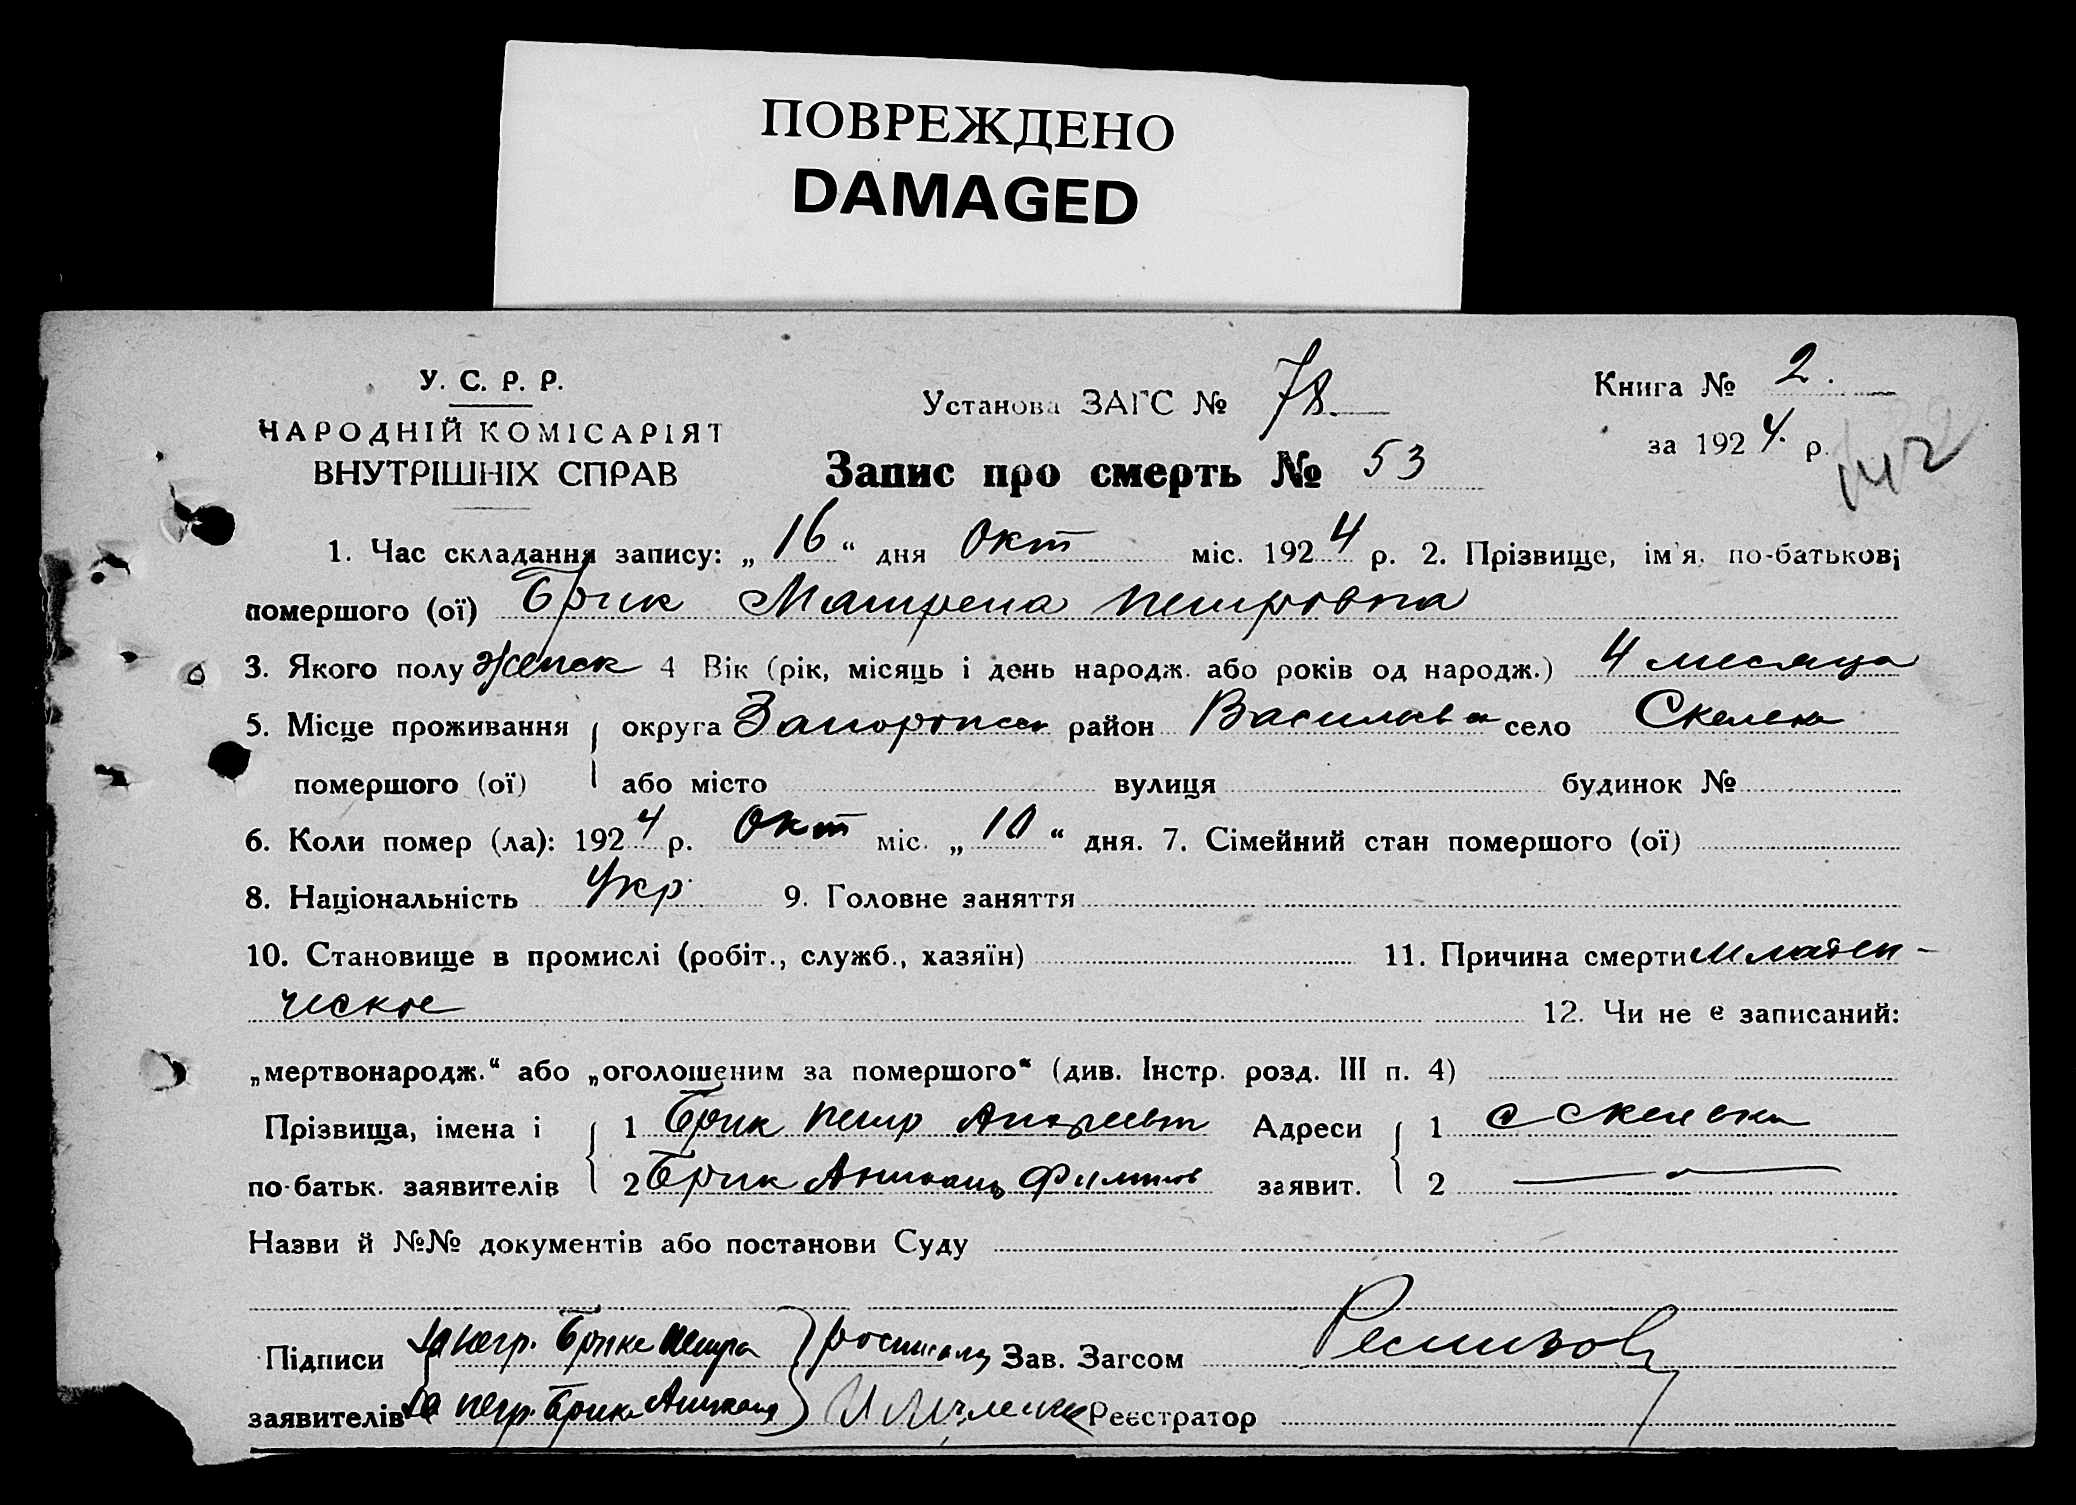 ПОВРЕЖДЕНО
DAMAGED
У. С. Р. Р.
НАРОДНІЙ КОМІСАРІЯТ
ВНУТРІШНІХ СПРАВ
Установа ЗАГС № 78.
Запис про смерть № 53
Книга № 2.
за 1924. р.
1. Час складання запису: „16“ дня Окт міс. 1924 р. 2. Прізвище, ім'я, по-батькові
помершого (ої) Брик Матрена Петровна
3. Якого полу женск 4 Вік (рік, місяць і день народж. або років од народж.) 4 месяца
5. Місце проживання округа район село
помершого (ої) або місто вулиця будинок №
6. Коли помер (ла): 1924 р. Окт міс. „10“ дня. 7. Сімейний стан помершого (ої)
8. Національність Укр. 9. Головне заняття
10. Становище в промислі (робіт., служб., хазяїн) 11. Причина смерти младен-
ческое 12. Чи не є записаний:
„мертвонародж.“ або „оголошеним за помершого“ (див. Інстр. розд. III п. 4)
Прізвища, імена і 1 Брик Петр Адреси 1 с
по-батьк. заявителів 2 Брик заявит. 2
Назви й №№ документів або постанови Суду
Підписи за негр. Брика Петра Зав. Загсом
заявителів за негр. Брика Реєстратор